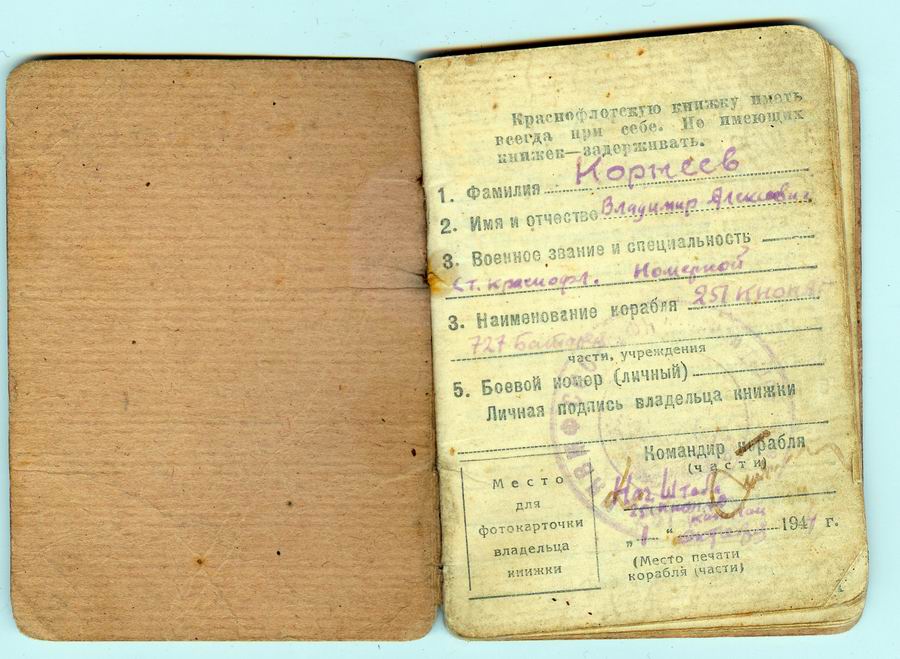 Краснофлотскую книжку иметь
всегда при себе. Не имеющих
книжек—задерживать.
1. Фамилия Корнеев
2. Имя и отчество Владимир Алексеевич
3. Военное звание и специальность
Ст. краснофл. Номерной
3. Наименование корабля 251 КНОПАБ
727 Батарея
части, учреждения
5. Боевой номер (личный)
Личная подпись владельца книжки
Командир корабля
(части)
Место
для
фотокарточки
владельца
книжки
Нач. Штаба
капитан
„1“ октября 1941 г.
(Место печати
корабля (части)